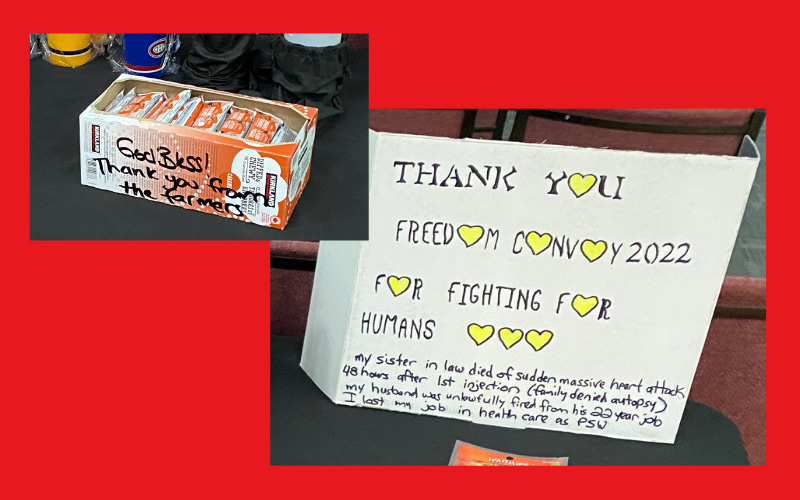 God Bless!
Thank you from
the farmers
KIRKLAND
KIRKLAND
DIPPED
CHEWY
THANK YOU
FREEDOM CONVOY 2022
FOR FIGHTING FOR
HUMANS
my sister in law died of sudden massive heart attack
48 hours after 1st injection (family denied autopsy)
my husband was unlawfully fired from his 22 year job
I lost my job in health care as PSW